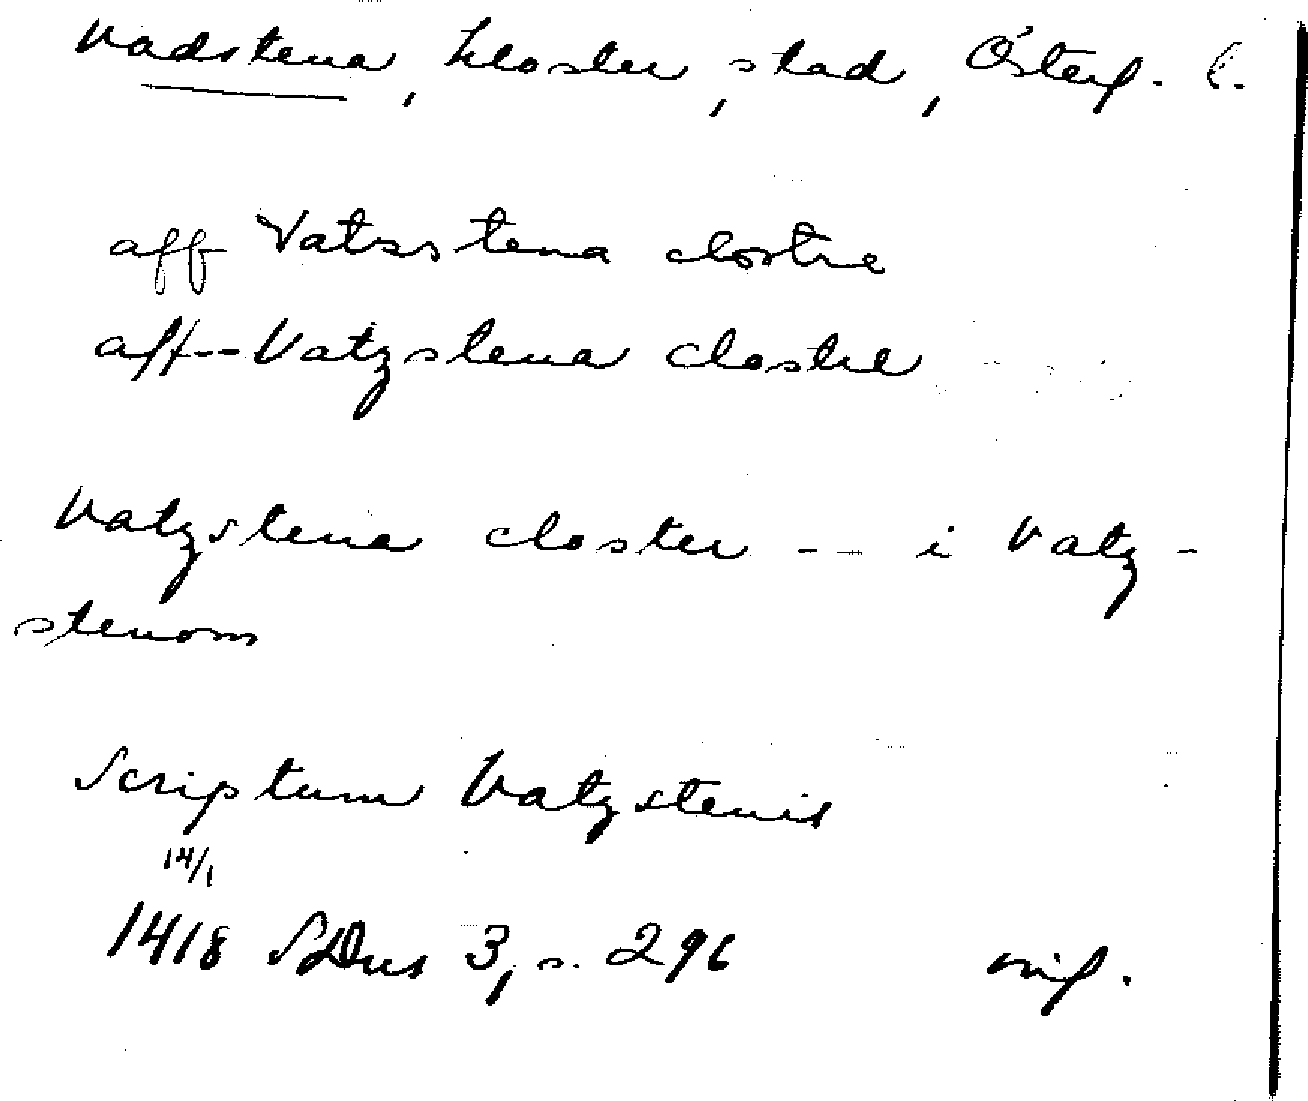 Vadstena, kloster, stad, Österg. l.
aff Vatzstena clostre
aff -- Vatzstena clostre
Vatzstena closter -- i Vatz-
stenom
Scriptum Vatzstenis
14/1
1418 SDns 3, s. 296